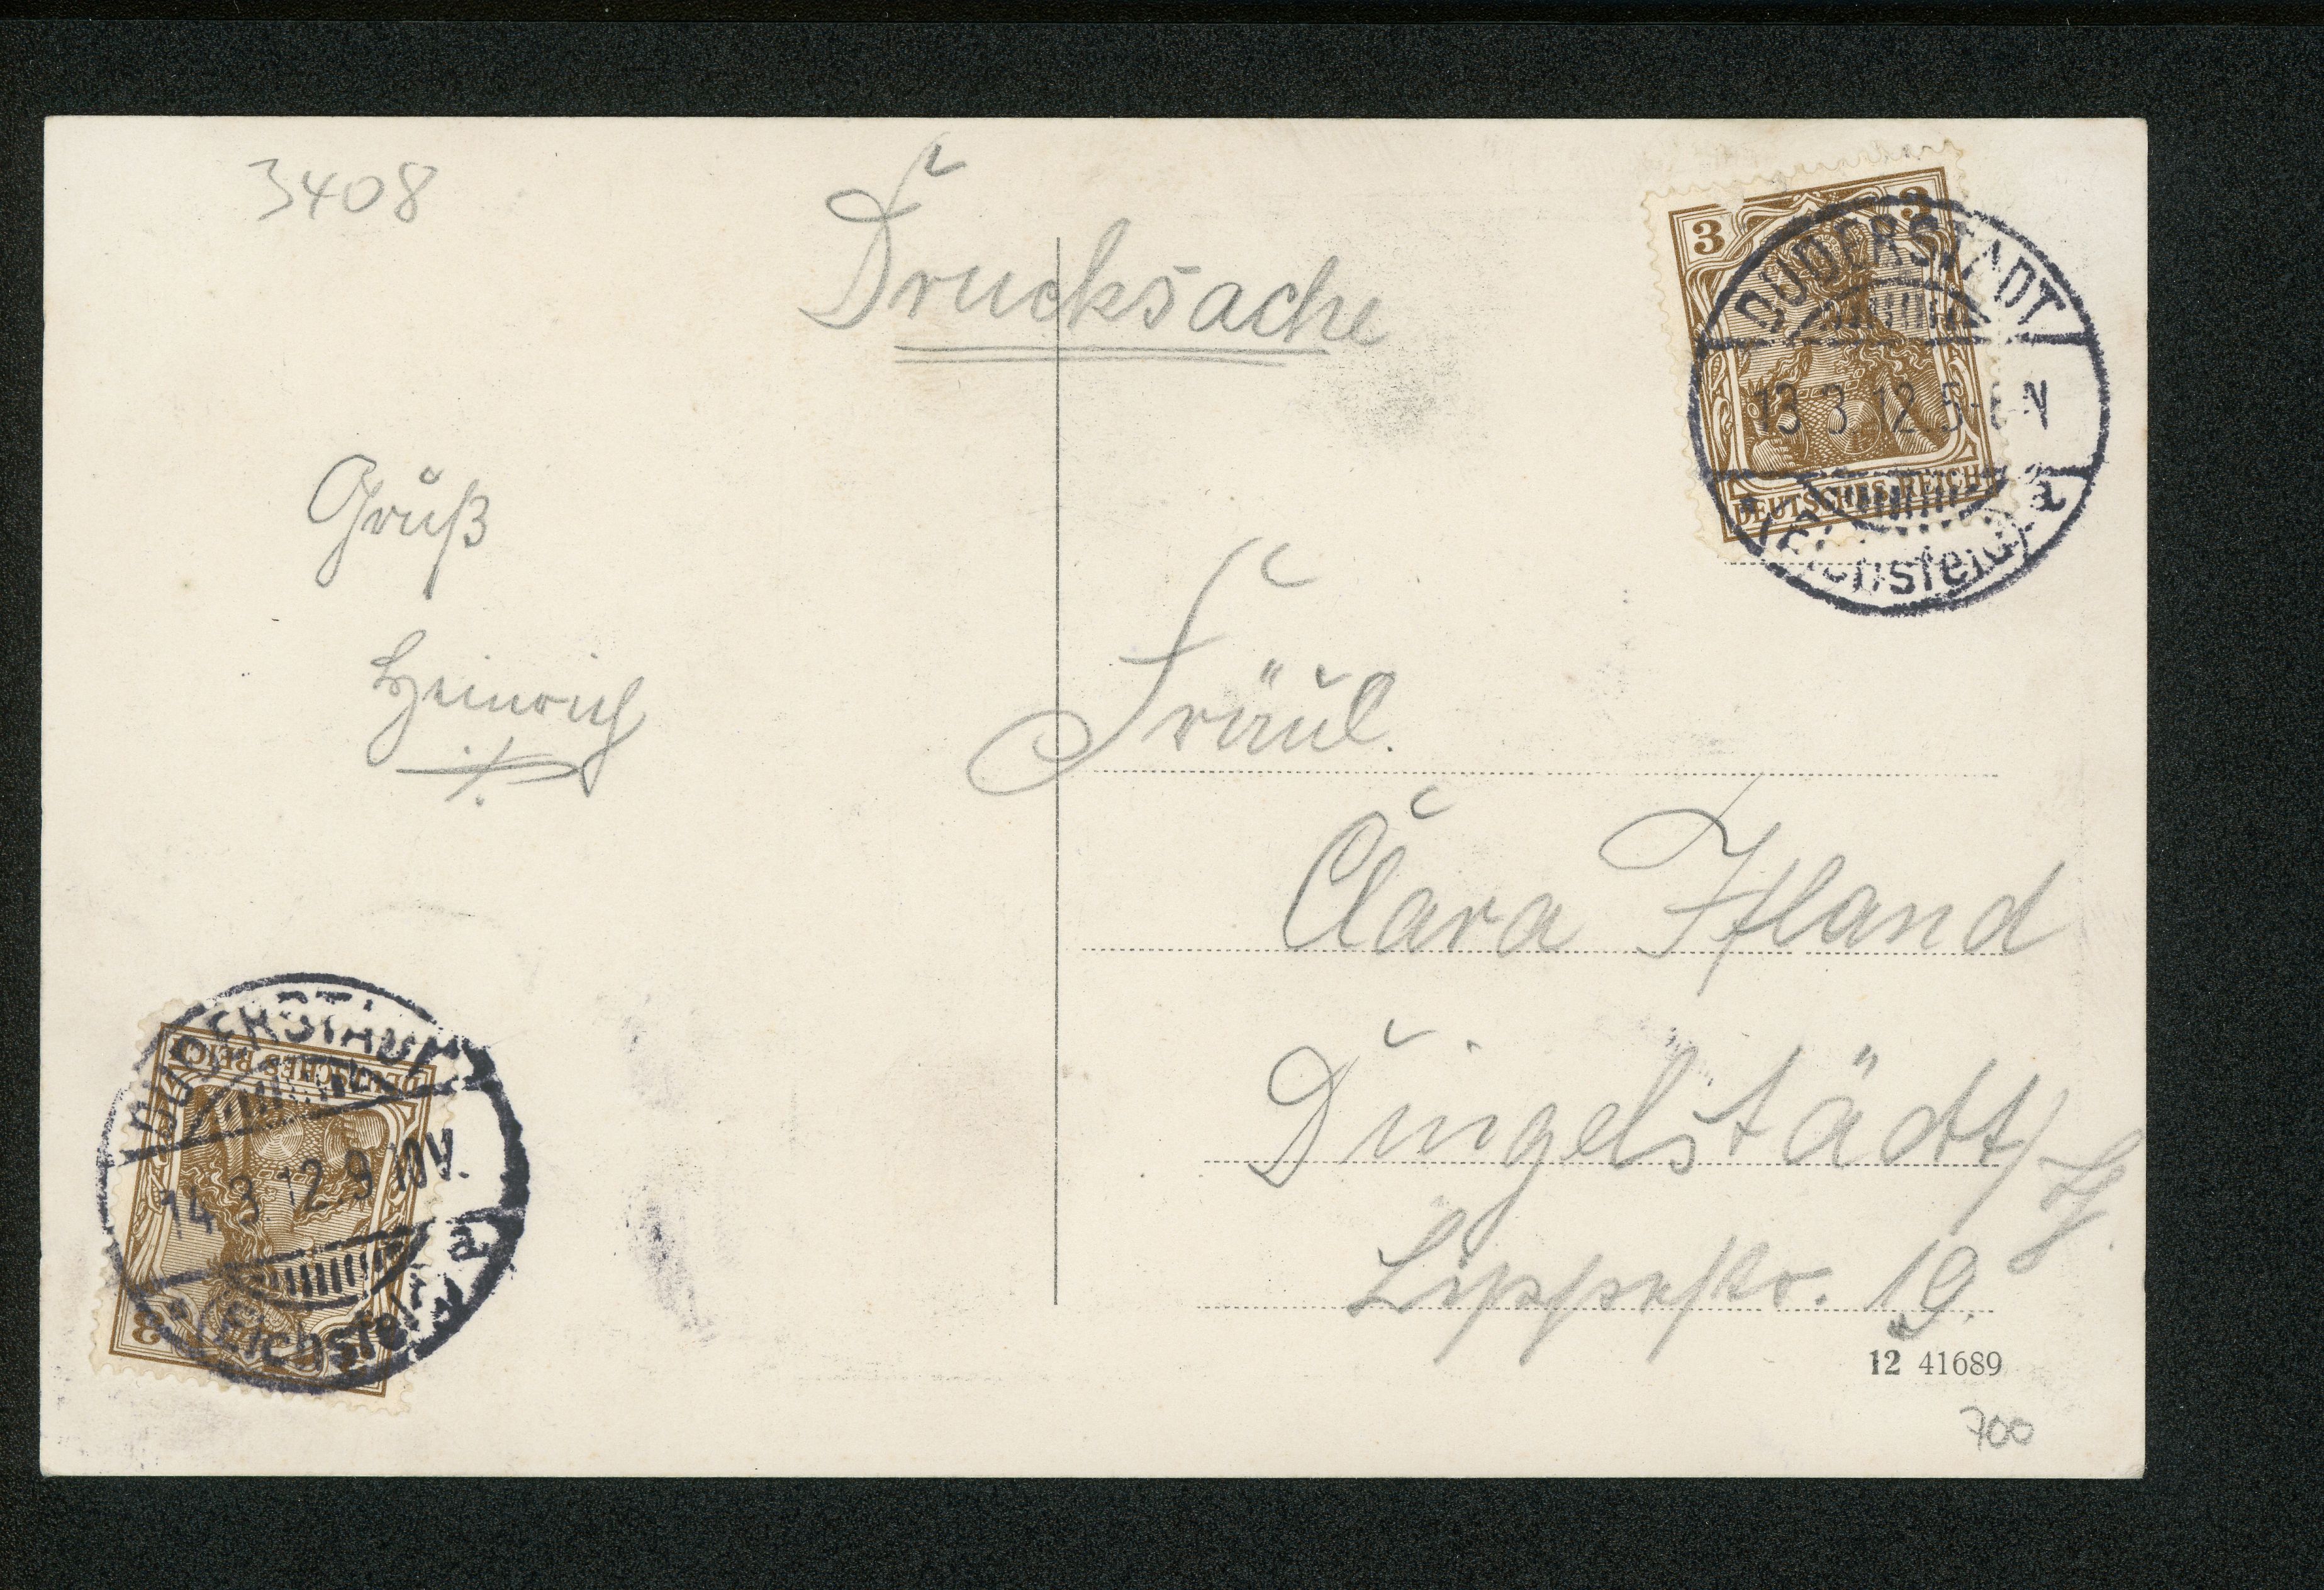 3408
Drucksache
3 3
DEUTSCHES REICH
DUDERSTADT
13.3.12.5-6N
(Eichsfeld) a
Gruß
Heinrich
Fräul.
Clara Ifland
Dingelstädt
Lippestr. 19.
DUDERSTADT
14.3.12.9-10V.
(Eichsfeld) a
DEUTSCHES REICH
3
12 41689
700